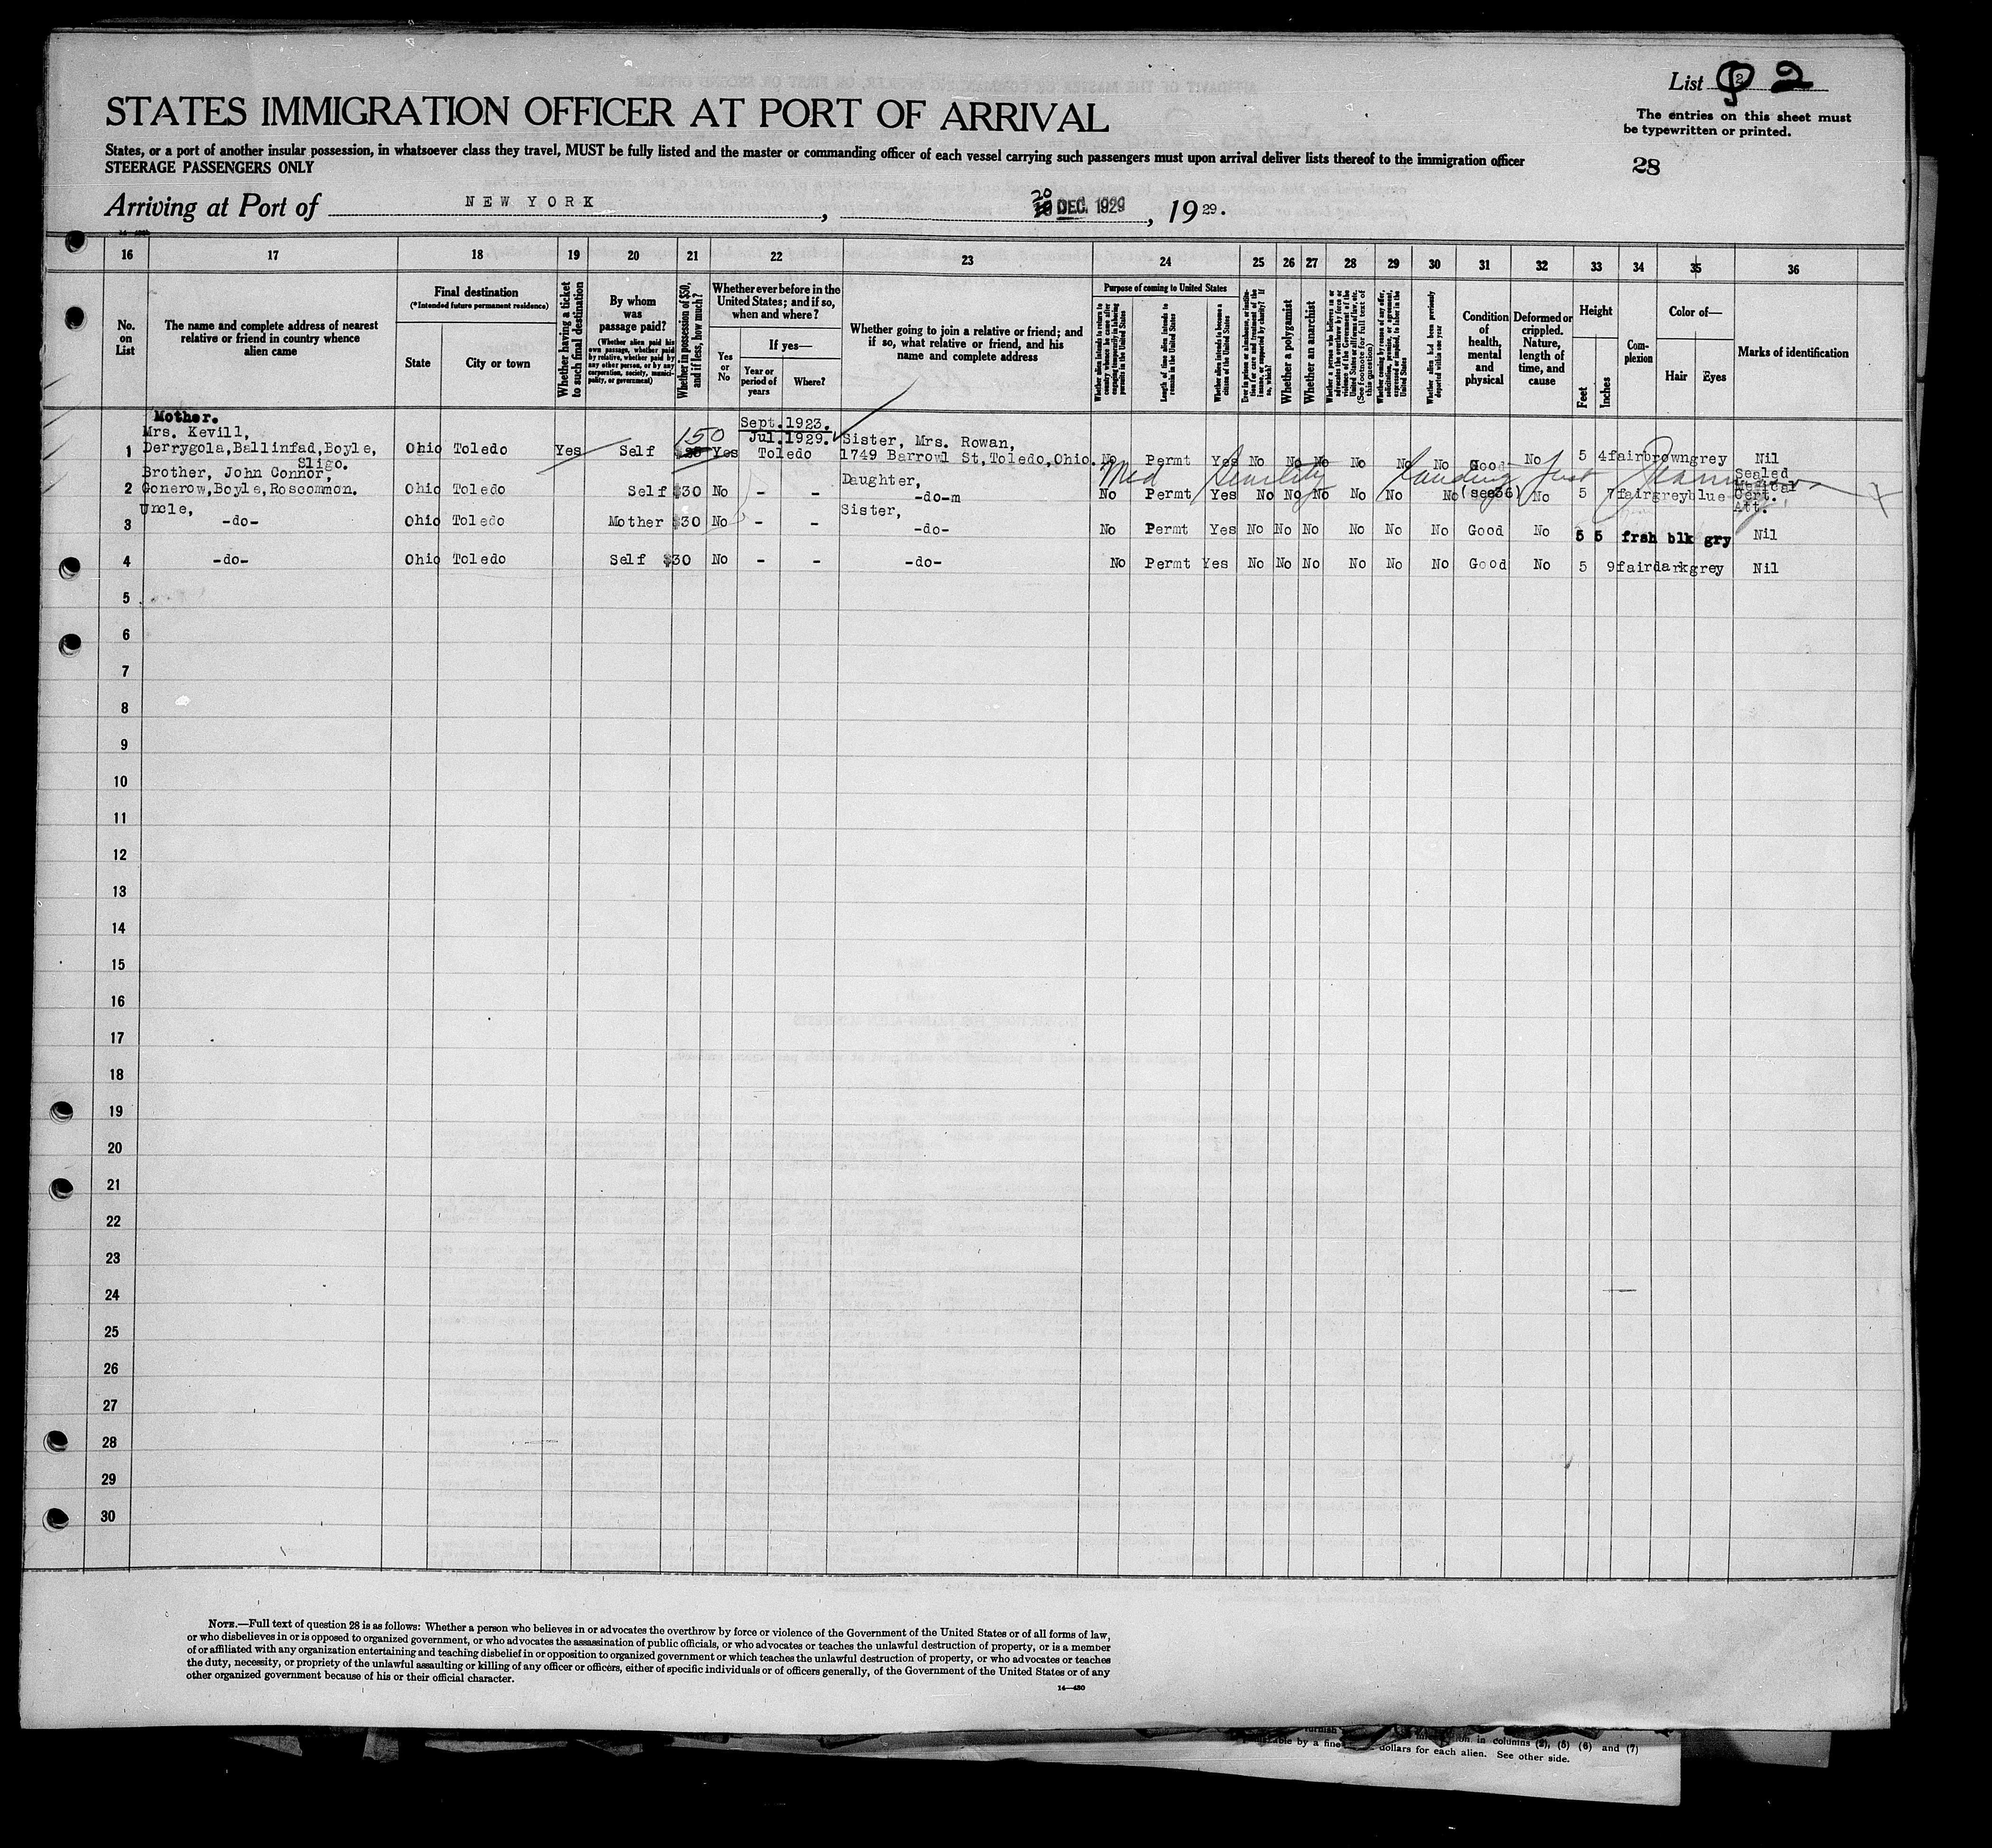 List 2 2
STATES IMMIGRATION OFFICER AT PORT OF ARRIVAL
The entries on this sheet must
be typewritten or printed.
States, or a port of another insular possession, in whatsoever class they travel, MUST be fully listed and the master or commanding officer of each vessel carrying such passengers must upon arrival deliver lists thereof to the immigration officer
STEERAGE PASSENGERS ONLY
28
Arriving at Port of NEW YORK, 20 DEC. 1929, 19 29.
16 17 18 19 20 21 22 23 24 25 26 27 28 29 30 31 32 33 34 35 36
No. on List
The name and complete address of nearest relative or friend in country whence alien came
Final destination
(*Intended future permanent residence)
State
City or town
Whether having a ticket to such final destination
By whom was passage paid?
(Whether alien paid his own passage, whether paid by relative, whether paid by any other person, or by any corporation, society, municipality, or government)
Whether in possession of $50, and if less, how much?
Whether ever before in the United States; and if so, when and where?
Yes or No
If yes—
Year or period of years
Where?
Whether going to join a relative or friend; and if so, what relative or friend, and his name and complete address
Purpose of coming to United States
Whether alien intends to return to country whence he came after engaging temporarily in laboring pursuits in the United States
Length of time alien intends to remain in the United States
Whether alien intends to become a citizen of the United States
Ever in prison or almshouse, or institution for care and treatment of the insane, or supported by charity? If so, which?
Whether a polygamist
Whether an anarchist
Whether a person who believes in or advocates the overthrow by force or violence of the Government of the United States or all forms of law, etc. (See footnote for full text of this question)
Whether coming by reason of any offer, solicitation, promise, or agreement, expressed or implied, to labor in the United States
Whether alien had been previously deported within one year
Condition of health, mental and physical
Deformed or crippled. Nature, length of time, and cause
Height
Feet
Inches
Complexion
Color of—
Hair
Eyes
Marks of identification
Mother.
Mrs. Kevill,
1 Derrygola,Ballinfad,Boyle,
Sligo.
Ohio Toledo Yes Self 150 Yes
Sept.1923.
Jul.1929.
Toledo
Sister, Mrs. Rowan,
1749 Barrowl St,Toledo,Ohio.
No Permt Yes No No No No No No Good No 5 4 fair brown grey Nil
Brother, John Connor,
2 Gonerow,Boyle,Roscommon.
Ohio Toledo Self $30 No - -
Daughter,
-do-m
Med Senility
No Permt Yes No No No No No No (see36) No 5 7 fair grey blue
Sealed
Medical
Cert.
Att.
Uncle,
3 -do- Ohio Toledo Mother $30 No - -
Sister,
-do-
No Permt Yes No No No No No No Good No 5 5 frsh blk gry Nil
4 -do- Ohio Toledo Self $30 No - - -do- No Permt Yes No No No No No No Good No 5 9 fair dark grey Nil
5
6
7
8
9
10
11
12
13
14
15
16
17
18
19
20
21
22
23
24
25
26
27
28
29
30
NOTE.—Full text of question 28 is as follows: Whether a person who believes in or advocates the overthrow by force or violence of the Government of the United States or of all forms of law,
or who disbelieves in or is opposed to organized government, or who advocates the assassination of public officials, or who advocates or teaches the unlawful destruction of property, or is a member
of or affiliated with any organization entertaining and teaching disbelief in or opposition to organized government or which teaches the unlawful destruction of property, or who advocates or teaches
the duty, necessity, or propriety of the unlawful assaulting or killing of any officer or officers, either of specific individuals or of officers generally, of the Government of the United States or of any
other organized government because of his or their official character.
14—430
furnish
in columns (2), (5) (6) and (7)
by a fine dollars for each alien. See other side.